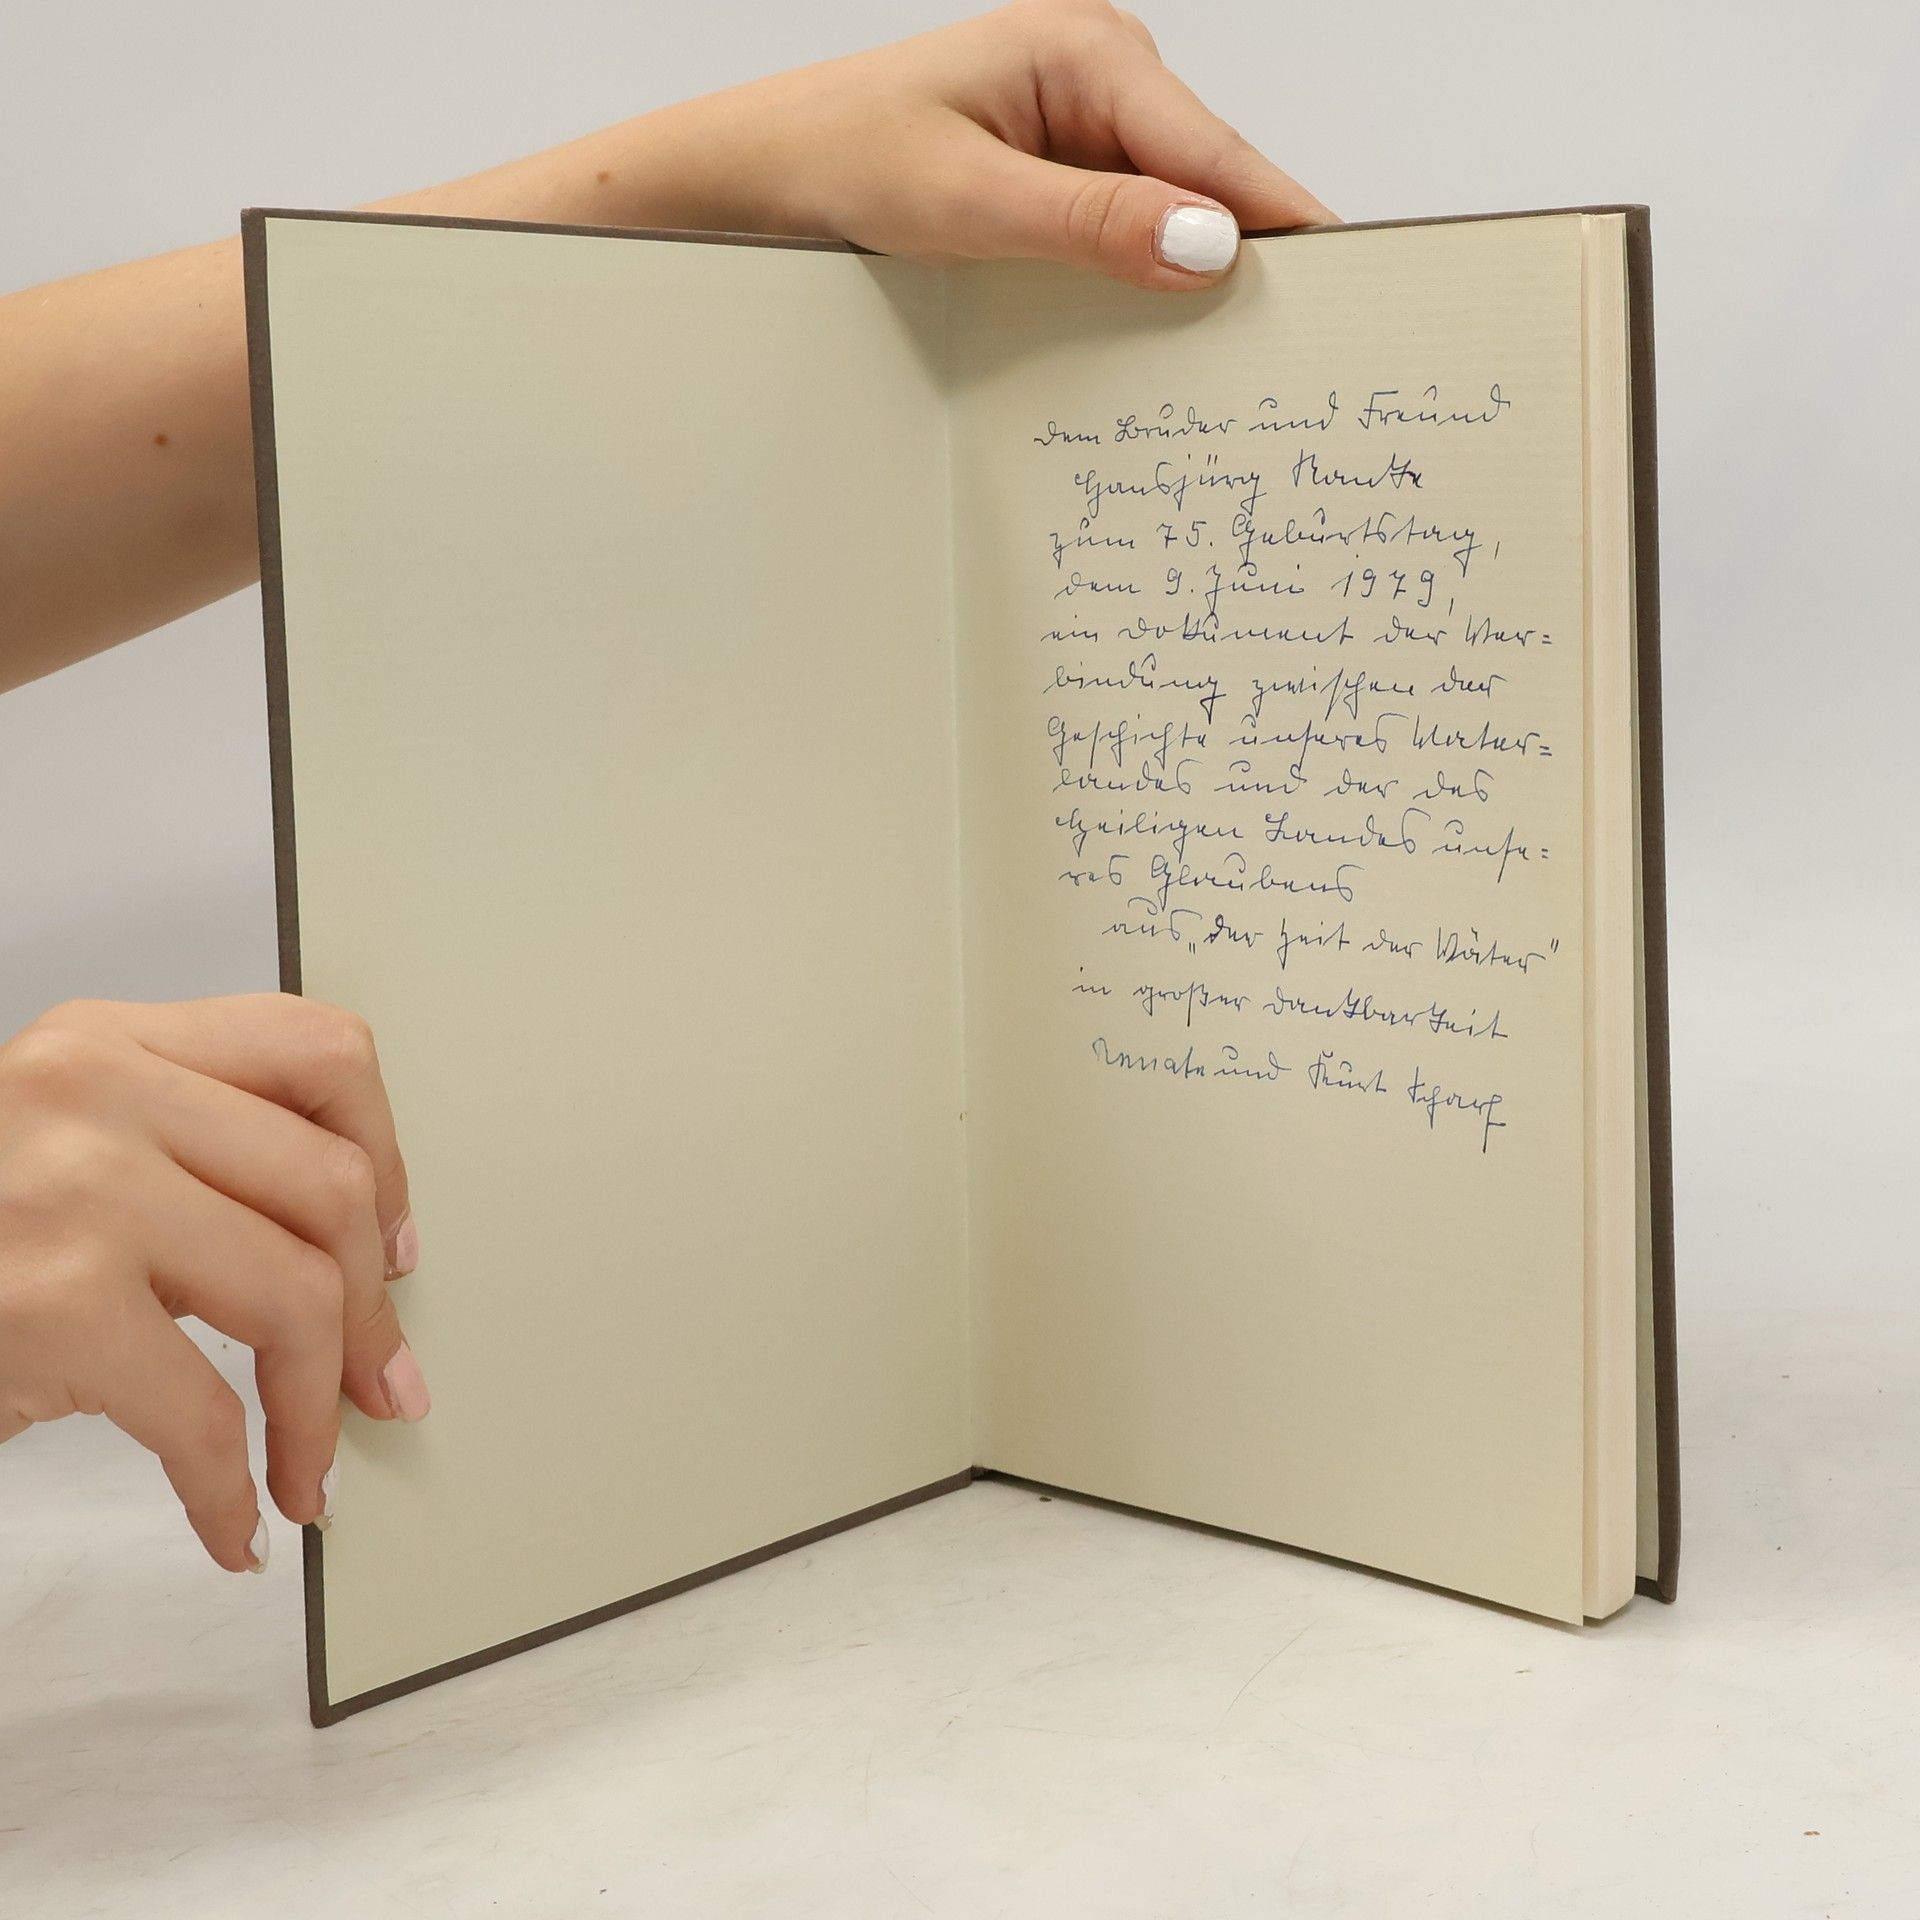 Dem Bruder und Freund
Hansjürg Ranke
zum 75. Geburtstag,
dem 9. Juni 1979,
ein Dokument der Ver=
bindung zwischen der
Geschichte unseres Vater=
landes und der des
Heiligen Landes unse=
res Glaubens
aus „der Zeit der Väter"
in großer Dankbarkeit
Renate und Kurt Scharf